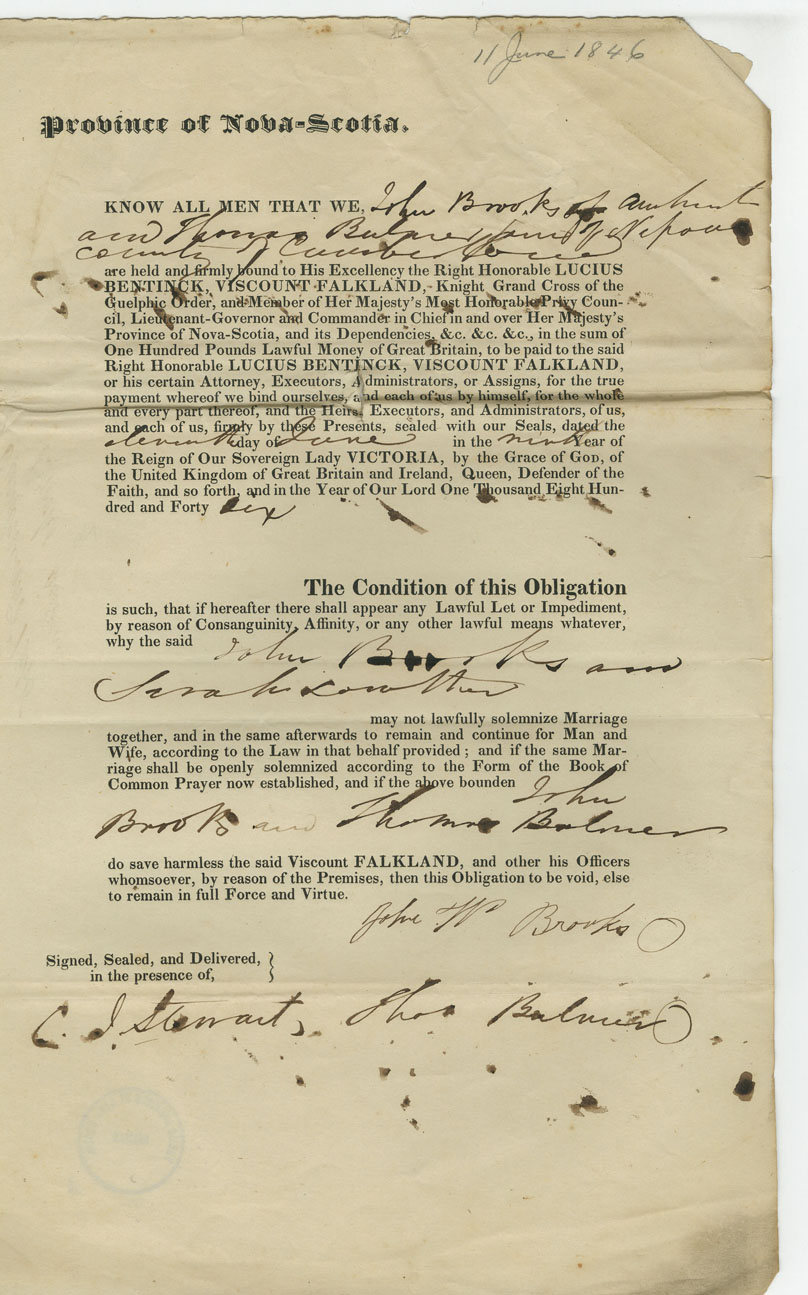 11 June 1846
Province of Nova-Scotia.
KNOW ALL MEN THAT WE, John Brooks of Amherst
and Thomas Bulmer, Junr of Napan
County of Cumberland
are held and firmly bound to His Excellency the Right Honorable LUCIUS
BENTINCK, VISCOUNT FALKLAND, Knight Grand Cross of the
Guelphic Order, and Member of Her Majesty's Most Honorable Privy Coun-
cil, Lieutenant-Governor and Commander in Chief in and over Her Majesty's
Province of Nova-Scotia, and its Dependencies, &c. &c. &c., in the sum of
One Hundred Pounds Lawful Money of Great Britain, to be paid to the said
Right Honorable LUCIUS BENTINCK, VISCOUNT FALKLAND,
or his certain Attorney, Executors, Administrators, or Assigns, for the true
payment whereof we bind ourselves, and each of us by himself, for the whole
and every part thereof, and the Heirs, Executors, and Administrators, of us,
and each of us, firmly by these Presents, sealed with our Seals, dated the
eleventh day of June in the ninth Year of
the Reign of Our Sovereign Lady VICTORIA, by the Grace of GOD, of
the United Kingdom of Great Britain and Ireland, Queen, Defender of the
Faith, and so forth, and in the Year of Our Lord One Thousand Eight Hun-
dred and Forty six
The Condition of this Obligation
is such, that if hereafter there shall appear any Lawful Let or Impediment,
by reason of Consanguinity, Affinity, or any other lawful means whatever,
why the said John Brooks and
Sarah Lowther
may not lawfully solemnize Marriage
together, and in the same afterwards to remain and continue for Man and
Wife, according to the Law in that behalf provided ; and if the same Mar-
riage shall be openly solemnized according to the Form of the Book of
Common Prayer now established, and if the above bounden John
Brooks and Thomas Bulmer
do save harmless the said Viscount FALKLAND, and other his Officers
whomsoever, by reason of the Premises, then this Obligation to be void, else
to remain in full Force and Virtue.
John W Brooks
Signed, Sealed, and Delivered,
in the presence of,
C. J. Stewart, Thos Bulmer